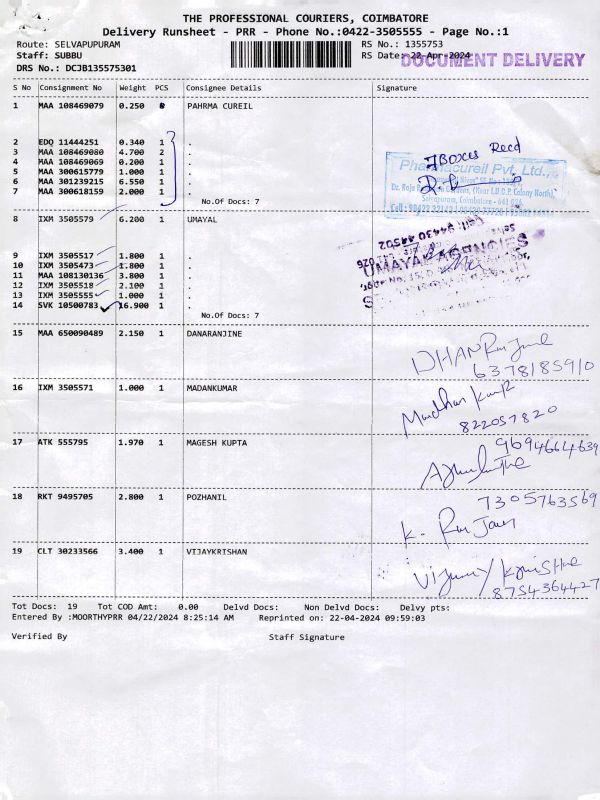 THE PROFESSIONAL COURIERS, COIMBATORE
Delivery Runsheet - PRR - Phone No.:0422-3505555 - Page No.:1
Route: SELVAPUPURAM RS No.: 1355753
Staff: SUBBU RS Date: 22-Apr-2024
DOCUMENT DELIVERY
DRS No.: DCJB135575301
S No Consignment No Weight PCS Consignee Details Signature
1 MAA 108469079 0.250 PAHRMA CUREIL
2 EDQ 11444251 0.340 1 .
3 MAA 108469080 4.700 2 .
4 MAA 108469069 0.200 1 .
5 MAA 300615779 1.000 1 .
6 MAA 301239215 6.550 1 .
7 MAA 300618159 2.000 1 .
No.Of Docs: 7
7 Boxes Recd
Pharmacureil Pvt. Ltd.,
8 IXM 3505579 6.200 1 UMAYAL
9 IXM 3505517 1.800 1 .
10 IXM 3505473 1.800 1 .
11 MAA 108130136 3.800 1 .
12 IXM 3505518 2.100 1 .
13 IXM 3505555 1.000 1 .
14 SVK 10500783 16.900 1 .
No.Of Docs: 7
UMAYAL AGENCIES
15 MAA 650090489 2.150 1 DANARANJINE
6378185910
16 IXM 3505571 1.000 1 MADANKUMAR
822057820
17 ATK 555795 1.970 1 MAGESH KUPTA
9694664639
18 RKT 9495705 2.800 1 POZHANIL
7305763569
19 CLT 30233566 3.400 1 VIJAYKRISHAN
8754364427
Tot Docs: 19 Tot COD Amt: 0.00 Delvd Docs: Non Delvd Docs: Delvy pts:
Entered By :MOORTHYPRR 04/22/2024 8:25:14 AM Reprinted on: 22-04-2024 09:59:03
Verified By Staff Signature